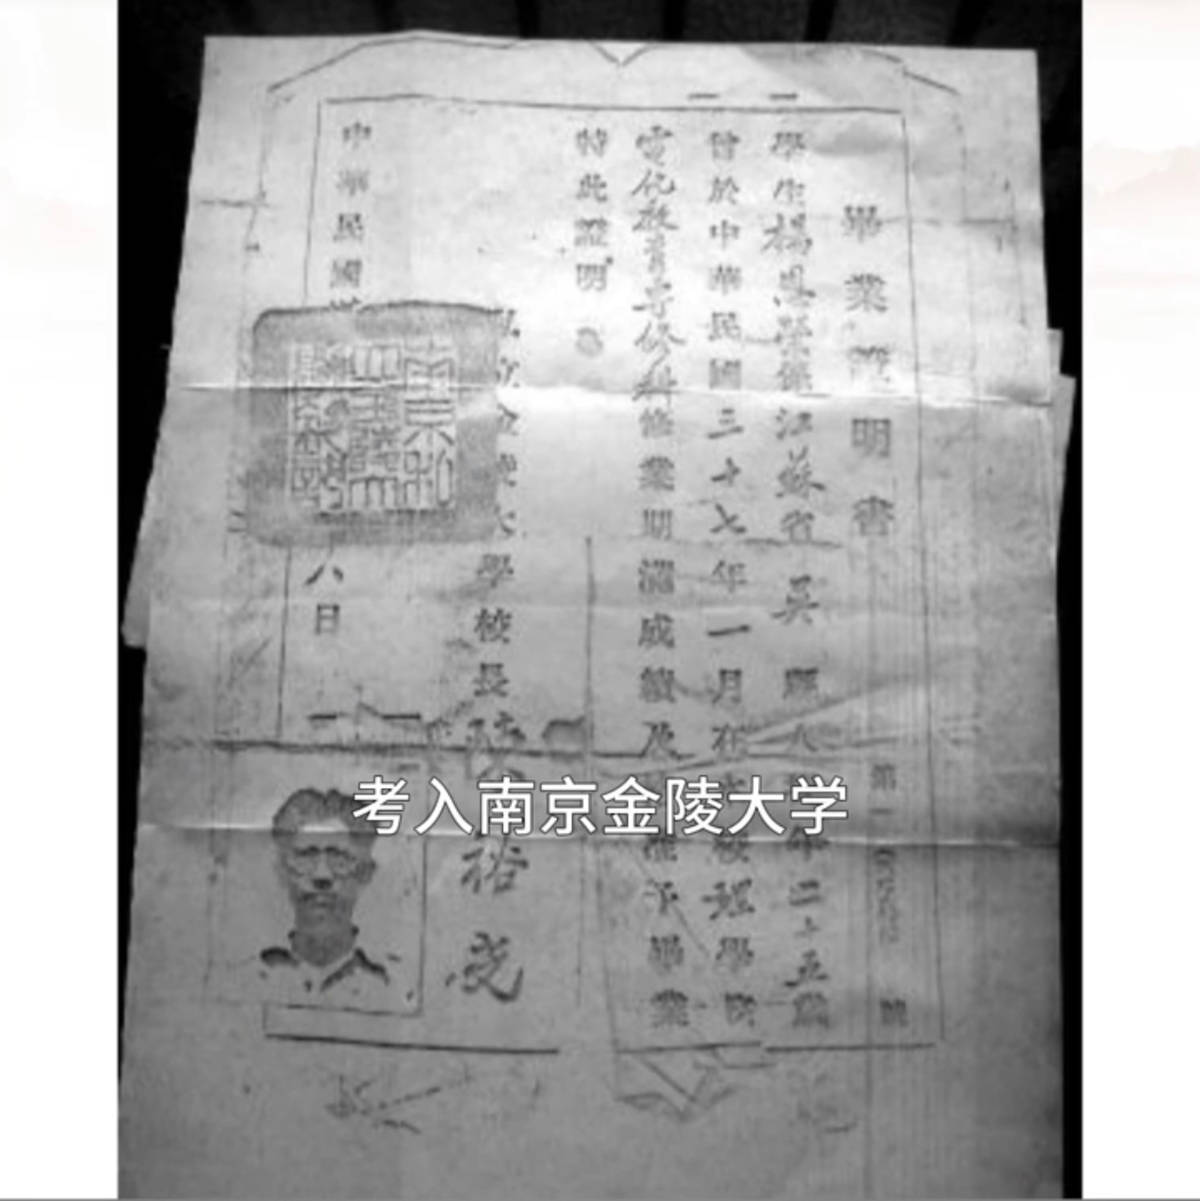 畢業證明書
第一 號
學生楊恩璞係江蘇省吳縣人 年二十五歲
曾於中華民國三十七年一月在 校理學院
電化教育專修科修業期滿成績及 准予畢業
特此證明
私立金陵大學校長陳裕光
中華民國
八日
南京私
考入南京金陵大学